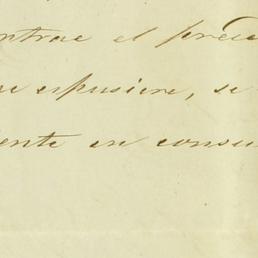 ntrae el prece
ue espusiere, se
ente en consu